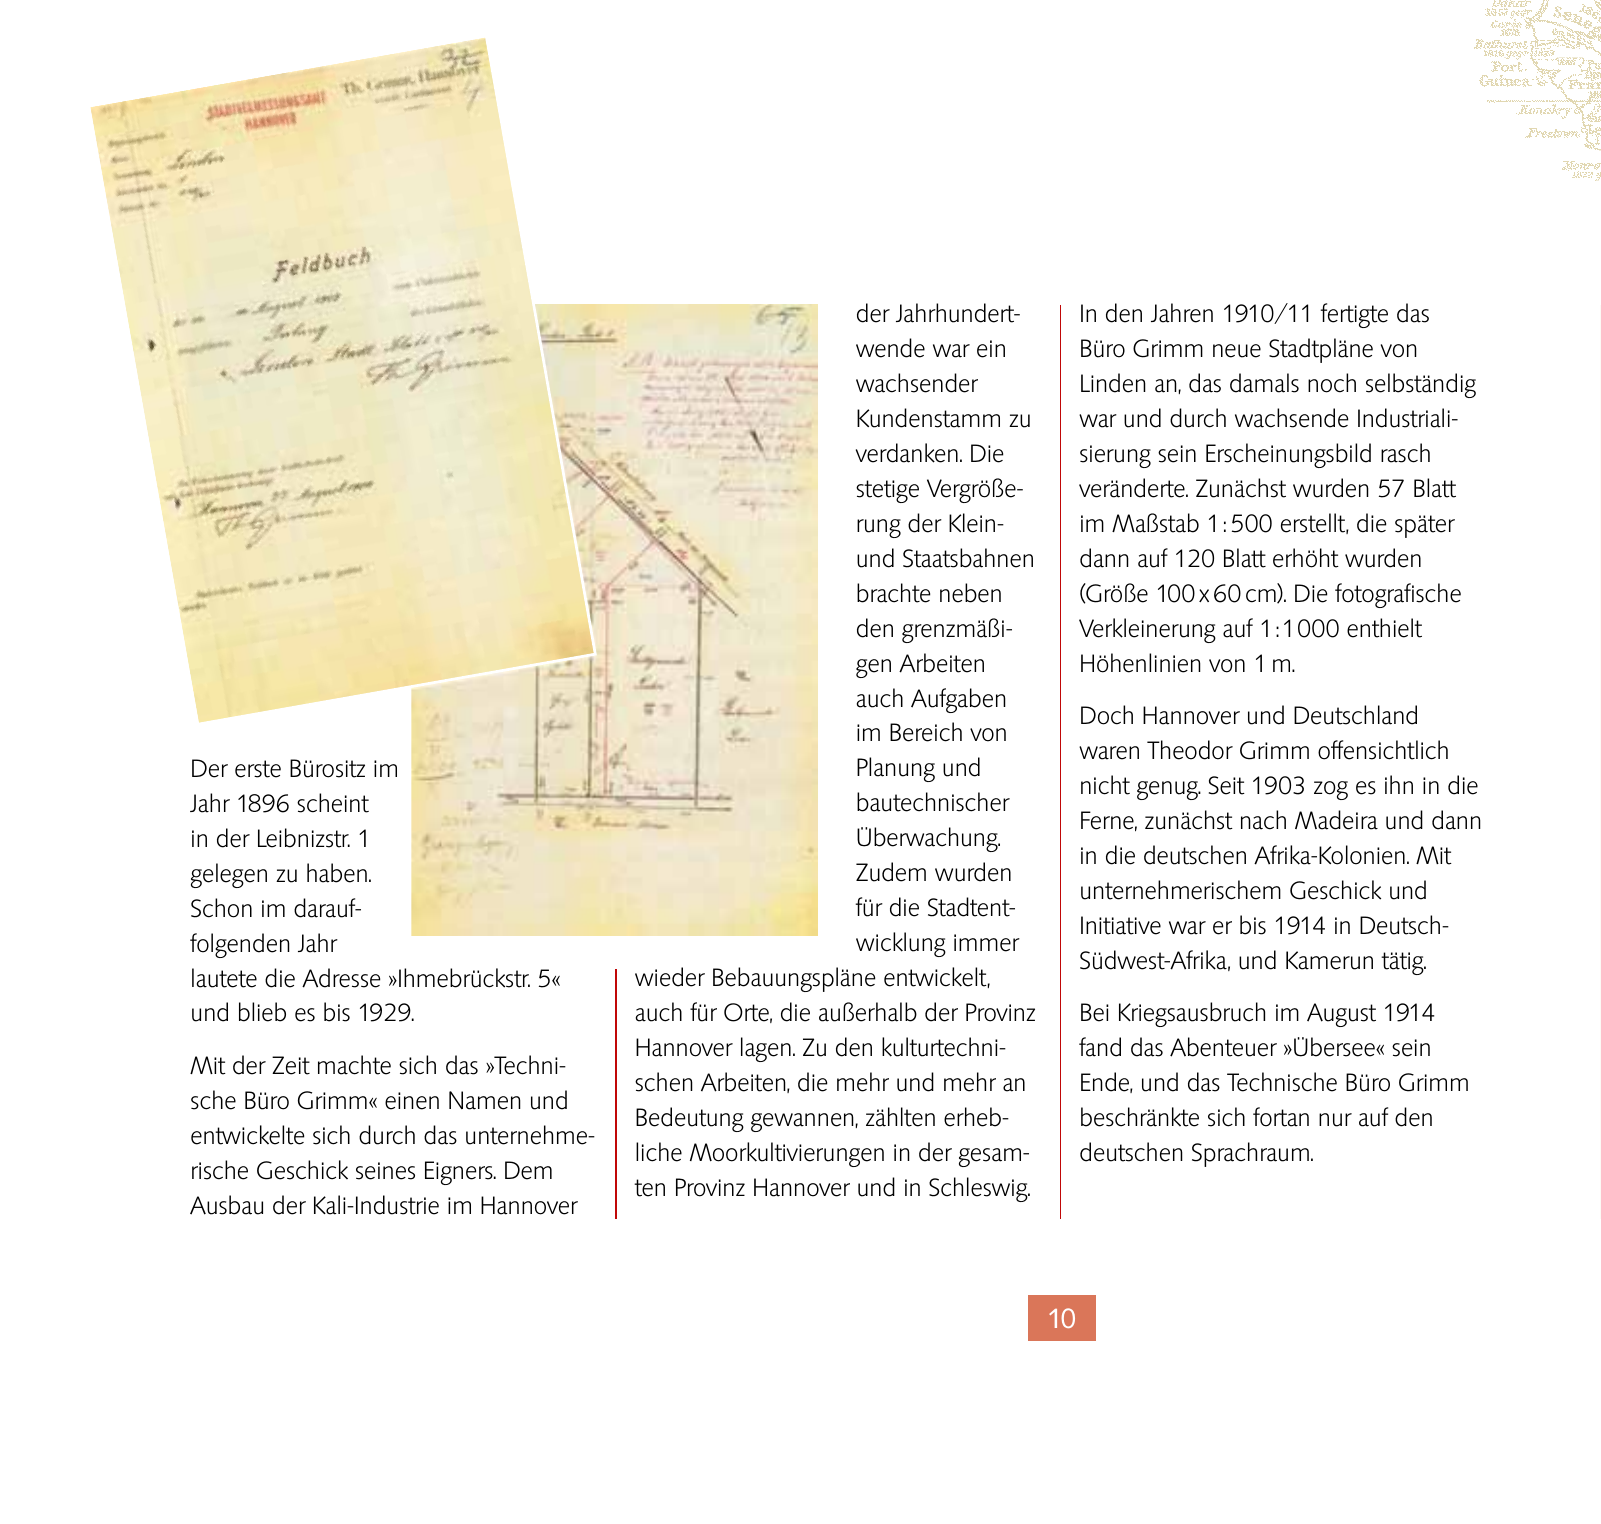 STADTVERMESSUNGSAMT
HANNOVER
Th. Grimm, Hannover
Linden
Feldbuch
August
Th Grimm
Hannover, 27. August
Th Grimm
Der erste Bürositz im
Jahr 1896 scheint
in der Leibnizstr. 1
gelegen zu haben.
Schon im darauf-
folgenden Jahr
lautete die Adresse »Ihmebrückstr. 5«
und blieb es bis 1929.
Mit der Zeit machte sich das »Techni-
sche Büro Grimm« einen Namen und
entwickelte sich durch das unternehme-
rische Geschick seines Eigners. Dem
Ausbau der Kali-Industrie im Hannover
der Jahrhundert-
wende war ein
wachsender
Kundenstamm zu
verdanken. Die
stetige Vergröße-
rung der Klein-
und Staatsbahnen
brachte neben
den grenzmäßi-
gen Arbeiten
auch Aufgaben
im Bereich von
Planung und
bautechnischer
Überwachung.
Zudem wurden
für die Stadtent-
wicklung immer
wieder Bebauungspläne entwickelt,
auch für Orte, die außerhalb der Provinz
Hannover lagen. Zu den kulturtechni-
schen Arbeiten, die mehr und mehr an
Bedeutung gewannen, zählten erheb-
liche Moorkultivierungen in der gesam-
ten Provinz Hannover und in Schleswig.
In den Jahren 1910/11 fertigte das
Büro Grimm neue Stadtpläne von
Linden an, das damals noch selbständig
war und durch wachsende Industriali-
sierung sein Erscheinungsbild rasch
veränderte. Zunächst wurden 57 Blatt
im Maßstab 1:500 erstellt, die später
dann auf 120 Blatt erhöht wurden
(Größe 100 x 60 cm). Die fotografische
Verkleinerung auf 1:1000 enthielt
Höhenlinien von 1 m.
Doch Hannover und Deutschland
waren Theodor Grimm offensichtlich
nicht genug. Seit 1903 zog es ihn in die
Ferne, zunächst nach Madeira und dann
in die deutschen Afrika-Kolonien. Mit
unternehmerischem Geschick und
Initiative war er bis 1914 in Deutsch-
Südwest-Afrika, und Kamerun tätig.
Bei Kriegsausbruch im August 1914
fand das Abenteuer »Übersee« sein
Ende, und das Technische Büro Grimm
beschränkte sich fortan nur auf den
deutschen Sprachraum.
Bathurst
Port.
Guinea
Konakry
Freetown
10